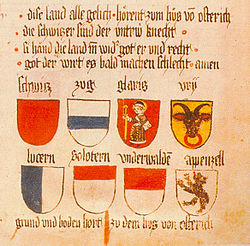 dise land alle gelich hörent zum hus von österich
die schwizer sind der untrü knecht
si händ die land wid got er und recht
got der wirt es bald machen schlecht amen
schwiz zug glaris vry
lucern solotern vnderwalde apenzell
grund und boden hört zu dem hus von östrich